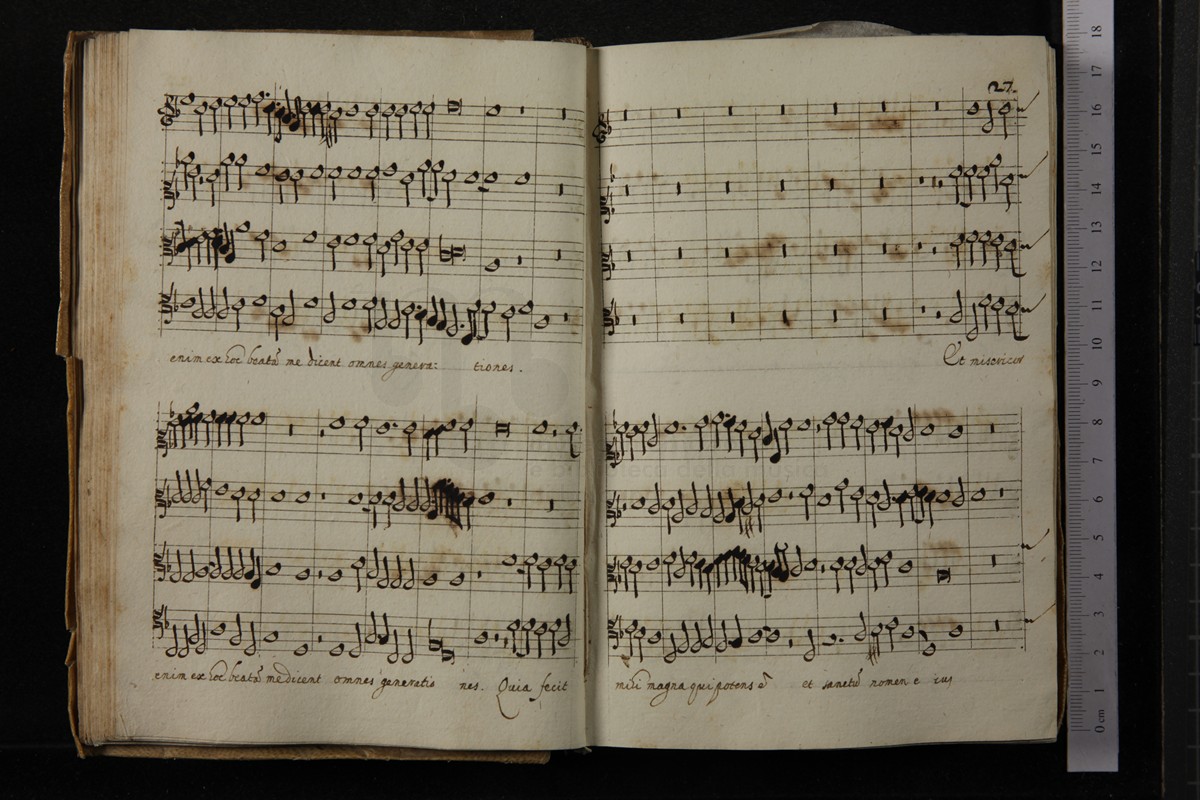 27.
enim ex hoc beatā me dicent omnes genera: tiones.
Et misericor
enim ex hoc beatā me dicent omnes generatio nes. Quia fecit
mihi magna qui potens ē et sanctū nomen e ius
e biblioteca della musica
18
17
16
15
14
13
12
11
10
9
8
7
6
5
4
3
2
1
0 cm